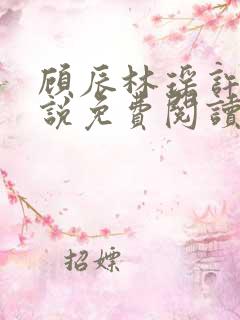 顾辰林瑶許
說免費閱讀
招嫖